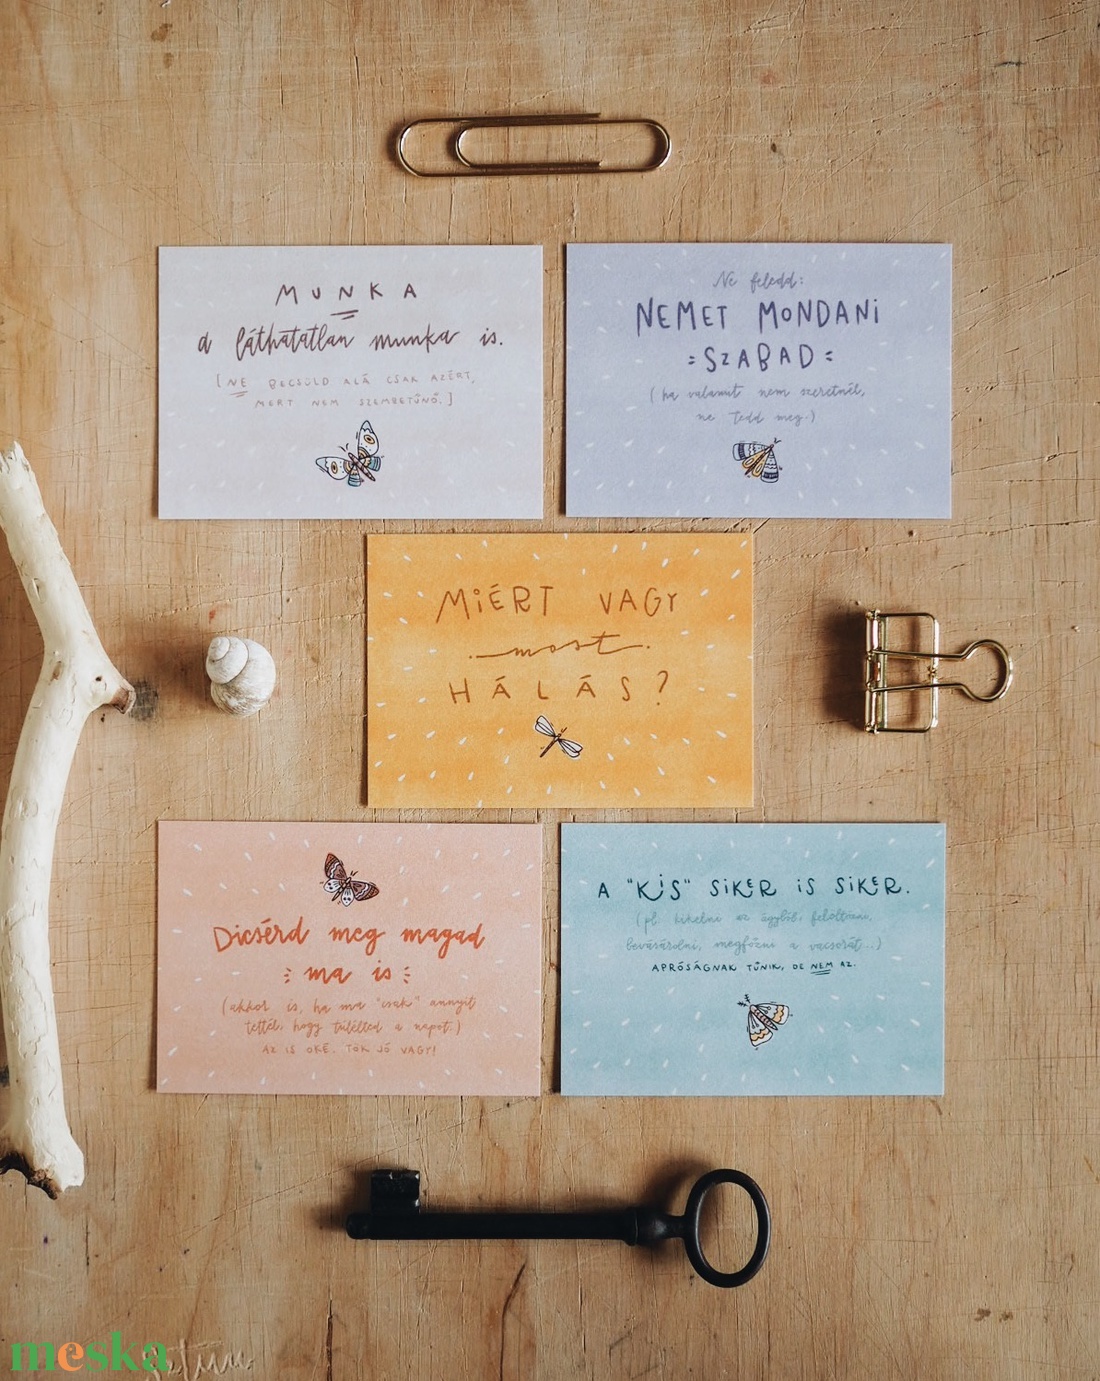 MUNKA
a láthatatlan munka is.
[NE BECSÜLD ALÁ CSAK AZÉRT,
MERT NEM SZEMBETŰNŐ.]
Ne feledd:
NEMET MONDANi
SZABAD
(ha valamit nem szeretnél,
ne tedd meg.)
MiÉRT VAGY
most
HÁLÁS?
Dicsérd meg magad
ma is
(akkor is, ha ma "csak" annyit
tettél, hogy túlélted a napot.)
AZ IS OKÉ. TÖK JÓ VAGY!
A "KiS" SiKER iS SiKER.
(pl. kikelni az ágyból, felöltözni,
bevásárolni, megfőzni a vacsorát...)
APRÓSÁGNAK TŰNIK, DE NEM AZ.
meska